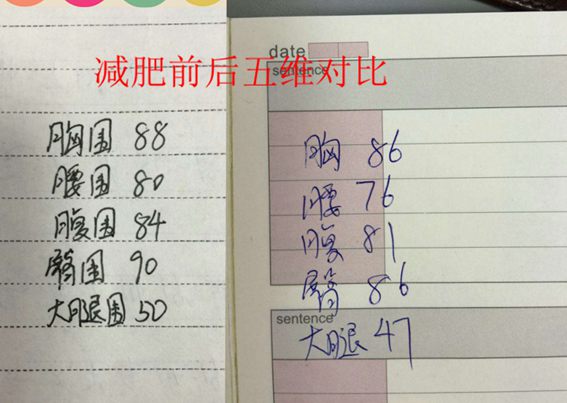 减肥前后五维对比
胸围 88
腰围 80
腹围 84
臀围 90
大腿围 50
date
sentence
胸 86
腰 76
腹 81
臀 86
sentence
大腿 47